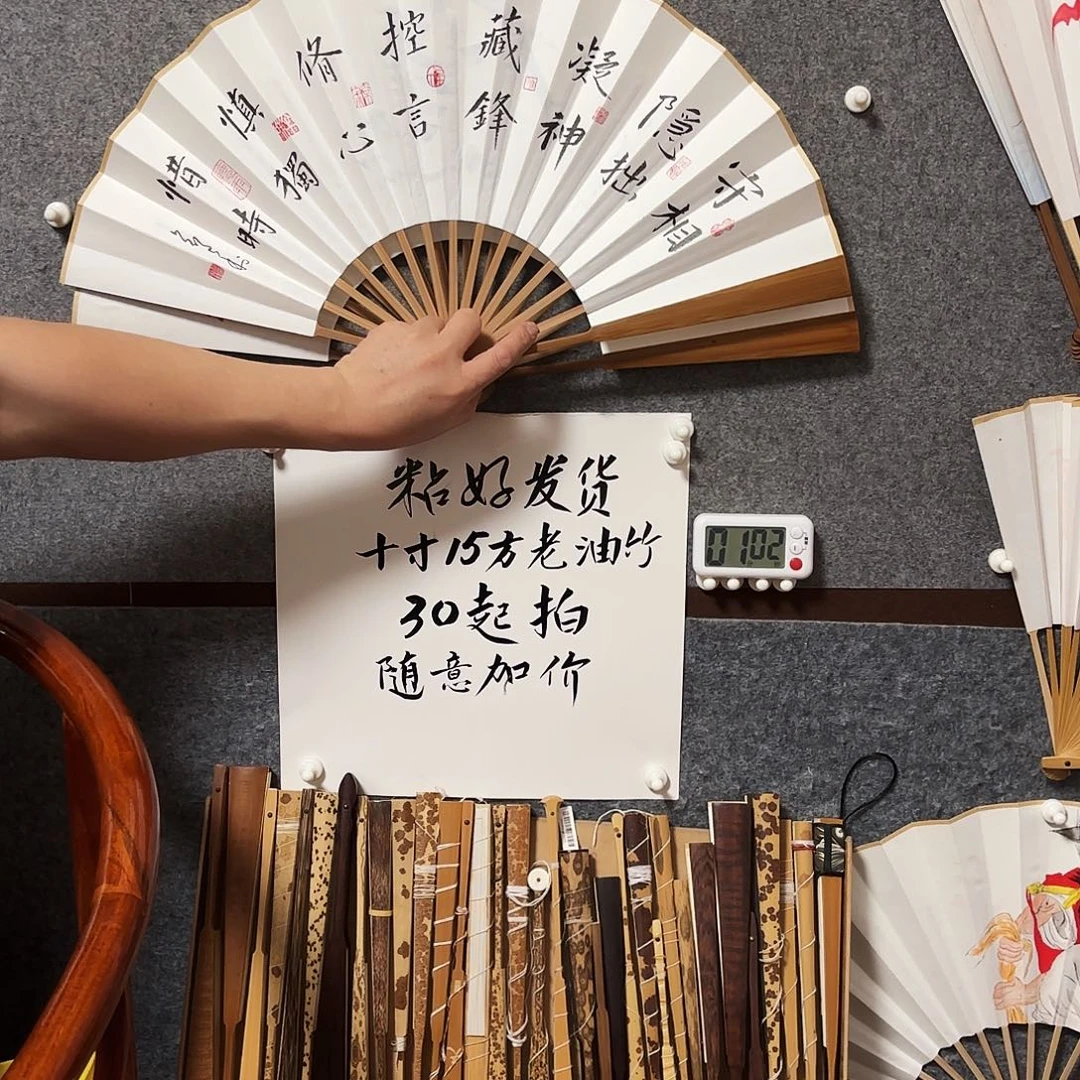 守相
隐拙
凝神
藏鋒
控言
脩心
慎獨
惜時
粘好发货
十寸15方老油竹
30起拍
随意加价
0102